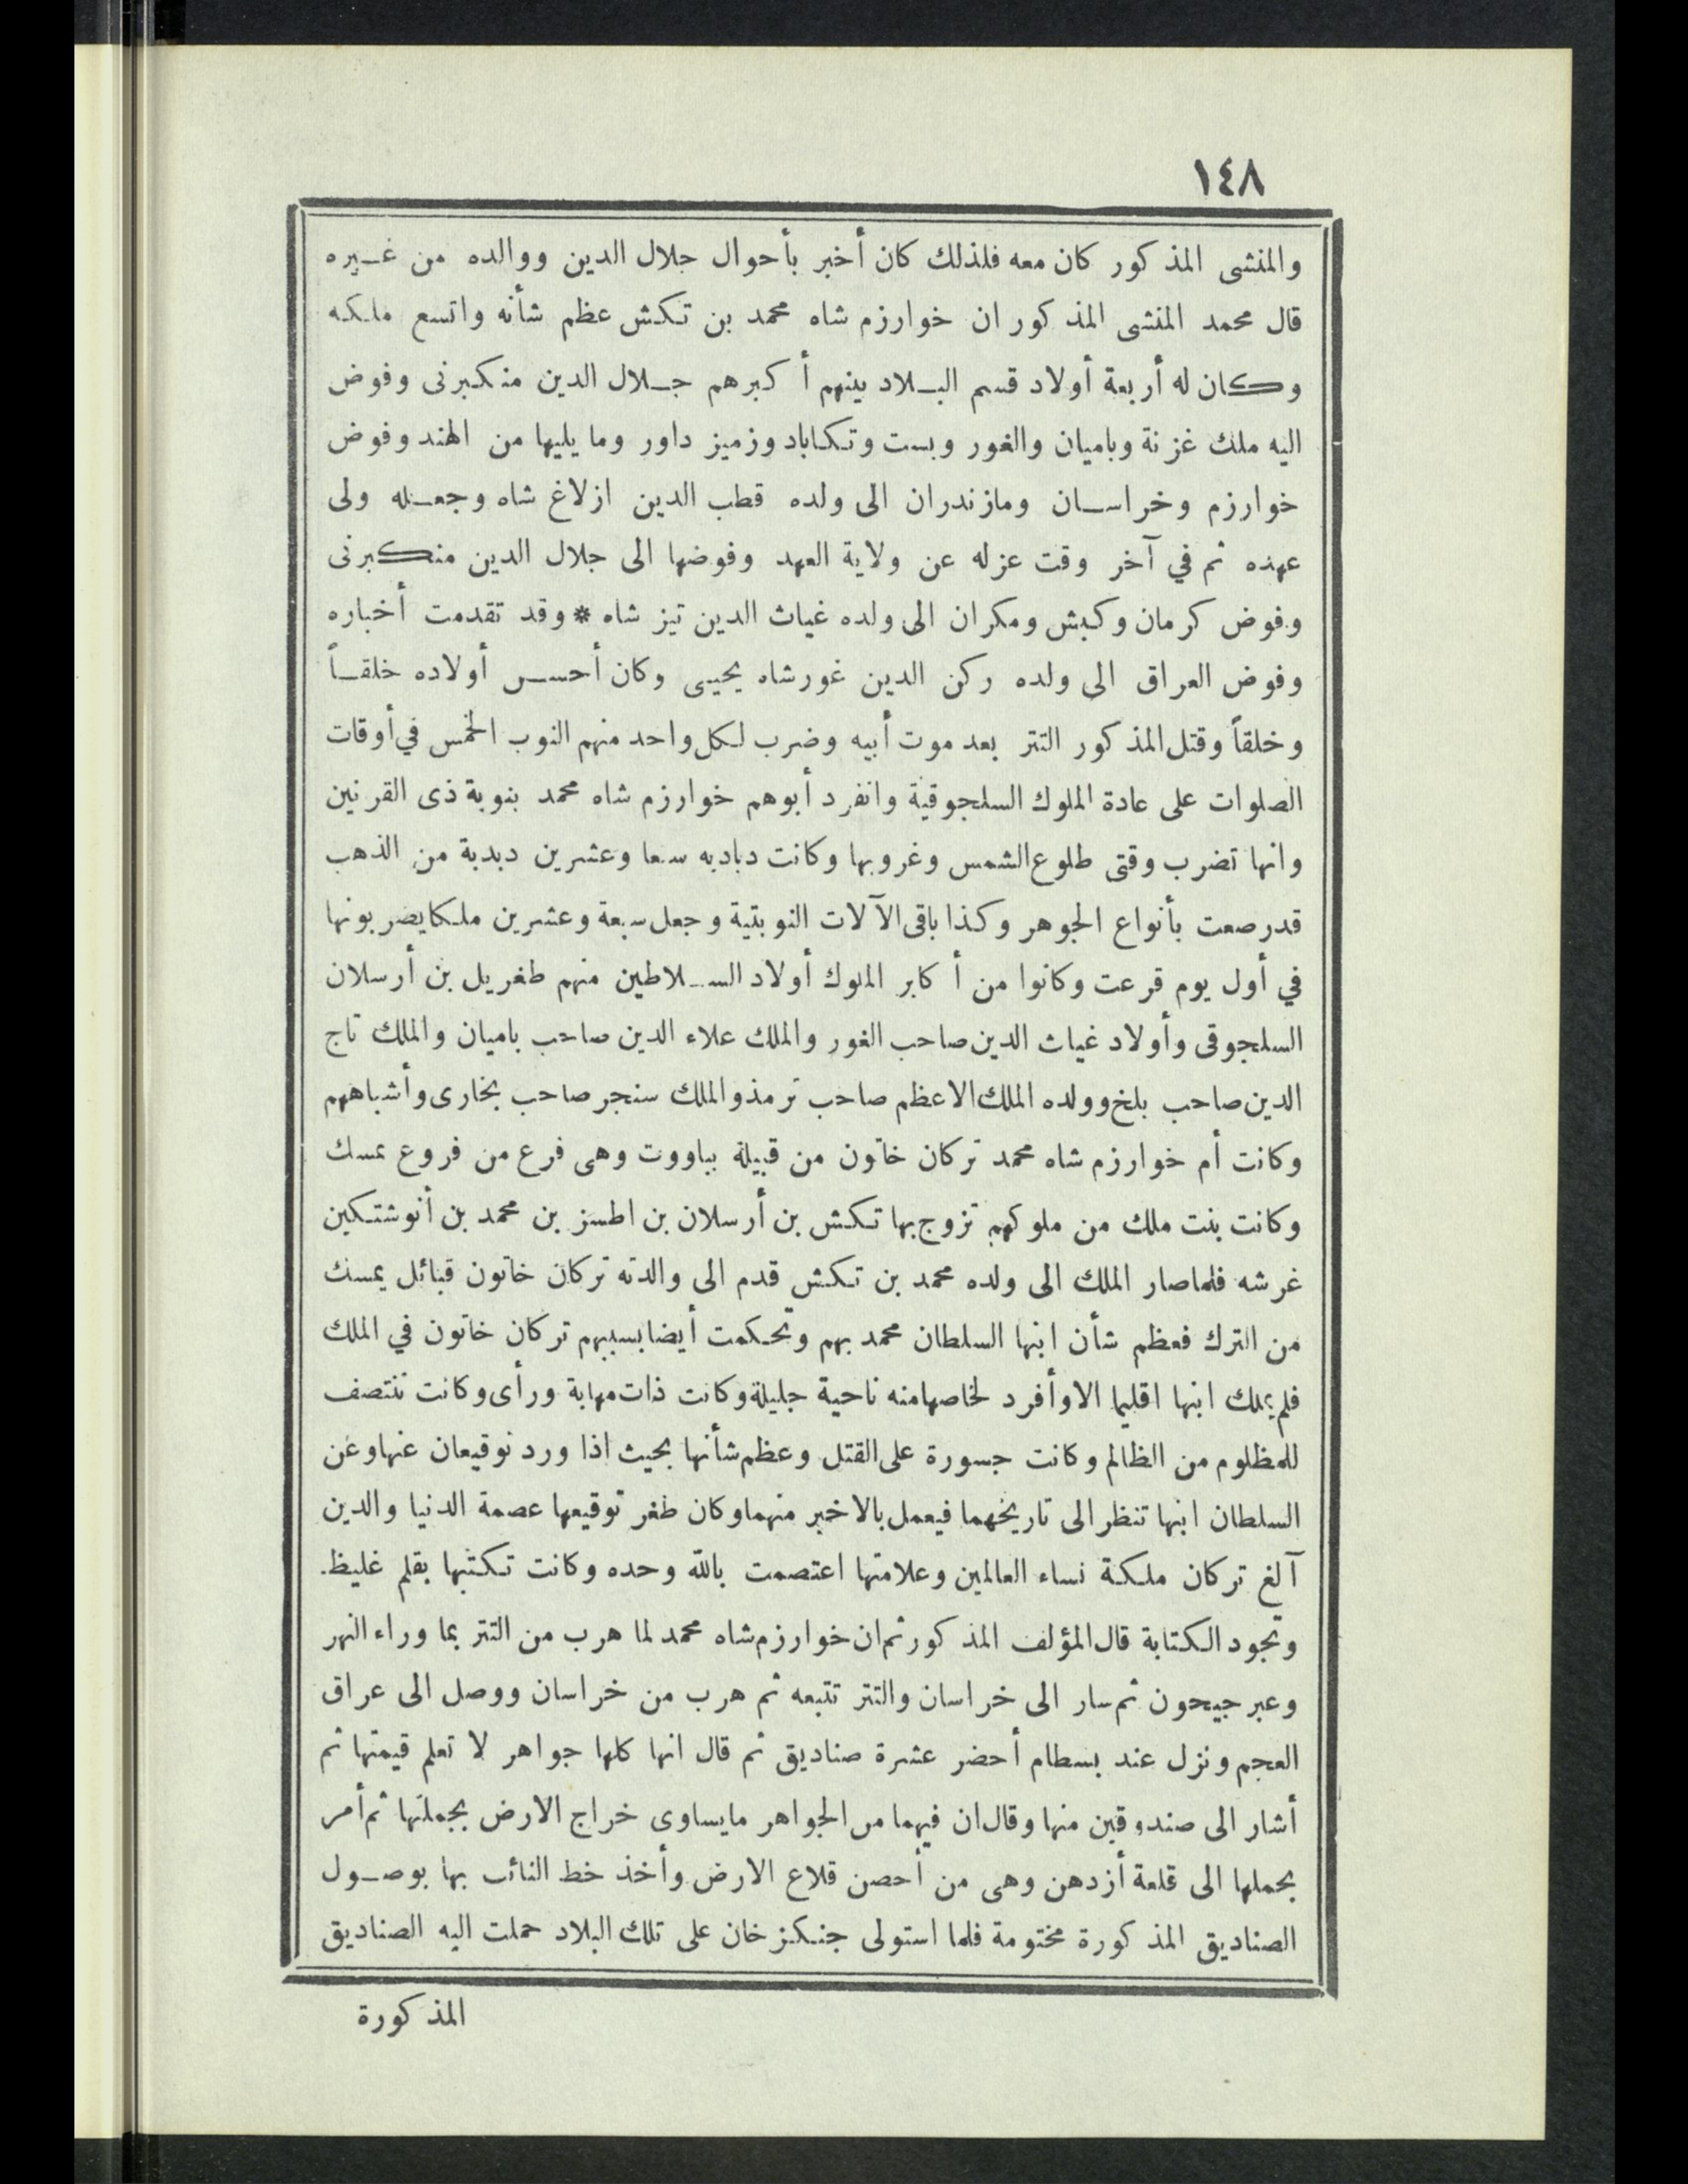 ١٤٨
والمنشى المذكور كان معه فلذلك كان أخبر بأحوال جلال الدين ووالده من غـيره
قال محمد المنشى المذكور ان خوارزم شاه محمد بن تكش عظم شأنه واتسع ملكه
وكان له أربعة أولاد قسم البـلاد بينهم أكبرهم جـلال الدين منكبرنى وفوض
اليه ملك غزنة وباميان والغور وبست وتكاباد وزميز داور وما يليها من الهند وفوض
خوارزم وخراسـان ومازندران الى ولده قطب الدين ازلاغ شاه وجعـله ولى
عهده ثم في آخر وقت عزله عن ولاية العهد وفوضها الى جلال الدين منكبرنى
وفوض كرمان وكبش ومكران الى ولده غياث الدين تيز شاه * وقد تقدمت أخباره
وفوض العراق الى ولده ركن الدين غورشاه يحيى وكان أحسـن أولاده خلقـاً
وخلقاً وقتل المذكور التتر بعد موت أبيه وضرب لكل واحد منهم النوب الخمس في أوقات
الصلوات على عادة الملوك السلجوقية وانفرد أبوهم خوارزم شاه محمد بنوبة ذى القرنين
وانها تضرب وقتى طلوع الشمس وغروبها وكانت دبادبه سبعا وعشرين دبدبة من الذهب
قد رصعت بأنواع الجوهر وكذا باقى الآلات النوبتية وجعل سبعة وعشرين ملكا يضربونها
في أول يوم قرعت وكانوا من أكابر الملوك أولاد السـلاطين منهم طغريل بن أرسلان
السلجوقى وأولاد غياث الدين صاحب الغور والملك علاء الدين صاحب باميان والملك تاج
الدين صاحب بلخ وولده الملك الاعظم صاحب ترمذ والملك سنجر صاحب بخارى وأشباههم
وكانت أم خوارزم شاه محمد تركان خاتون من قبيلة بياووت وهى فرع من فروع يمسك
وكانت بنت ملك من ملوكهم تزوج بها تكش بن أرسلان بن اطسز بن محمد بن أنوشتكين
غرشه فلما صار الملك الى ولده محمد بن تكش قدم الى والدته تركان خاتون قبائل يمسك
من الترك فعظم شأن ابنها السلطان محمد بهم وتحكمت أيضا بسببهم تركان خاتون في الملك
فلم يملك ابنها اقليما الا وأفرد لخاصها منه ناحية جليلة وكانت ذات مهابة ورأى وكانت تنتصف
للمظلوم من الظالم وكانت جسورة على القتل وعظم شأنها بحيث اذا ورد توقيعان عنها وعن
السلطان ابنها تنظر الى تاريخهما فيعمل بالاخير منهما وكان طغر توقيعها عصمة الدنيا والدين
آلغ تركان ملكة نساء العالمين وعلامتها اعتصمت بالله وحده وكانت تكتبها بقلم غليظ.
وتجود الكتابة قال المؤلف المذكور ثم ان خوارزم شاه محمد لما هرب من التتر بما وراء النهر
وعبر جيحون ثم سار الى خراسان والتتر تتبعه ثم هرب من خراسان ووصل الى عراق
العجم ونزل عند بسطام أحضر عشرة صناديق ثم قال انها كلها جواهر لا تعلم قيمتها ثم
أشار الى صندوقين منها وقال ان فيهما من الجواهر ما يساوى خراج الارض بجملتها ثم أمر
بحملها الى قلعة أزدهن وهى من أحصن قلاع الارض وأخذ خط النائب بها بوصـول
الصناديق المذكورة مختومة فلما استولى جنكز خان على تلك البلاد حملت اليه الصناديق
المذكورة